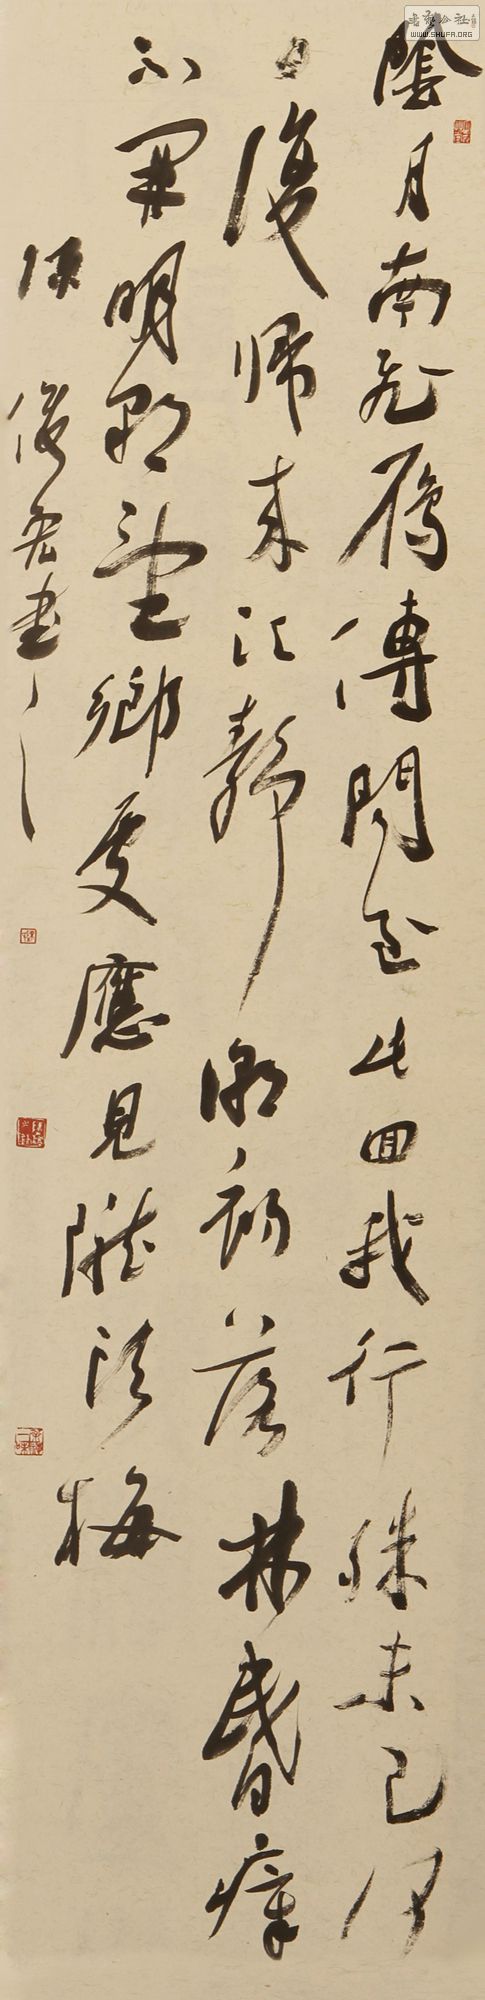 书法公社
WWW.SHUFA.ORG
陰月南飛雁傳聞至此回我行殊未已何
日復歸来江靜潮初落林昏瘴
不開明朝望鄉處應見隴頭梅
書